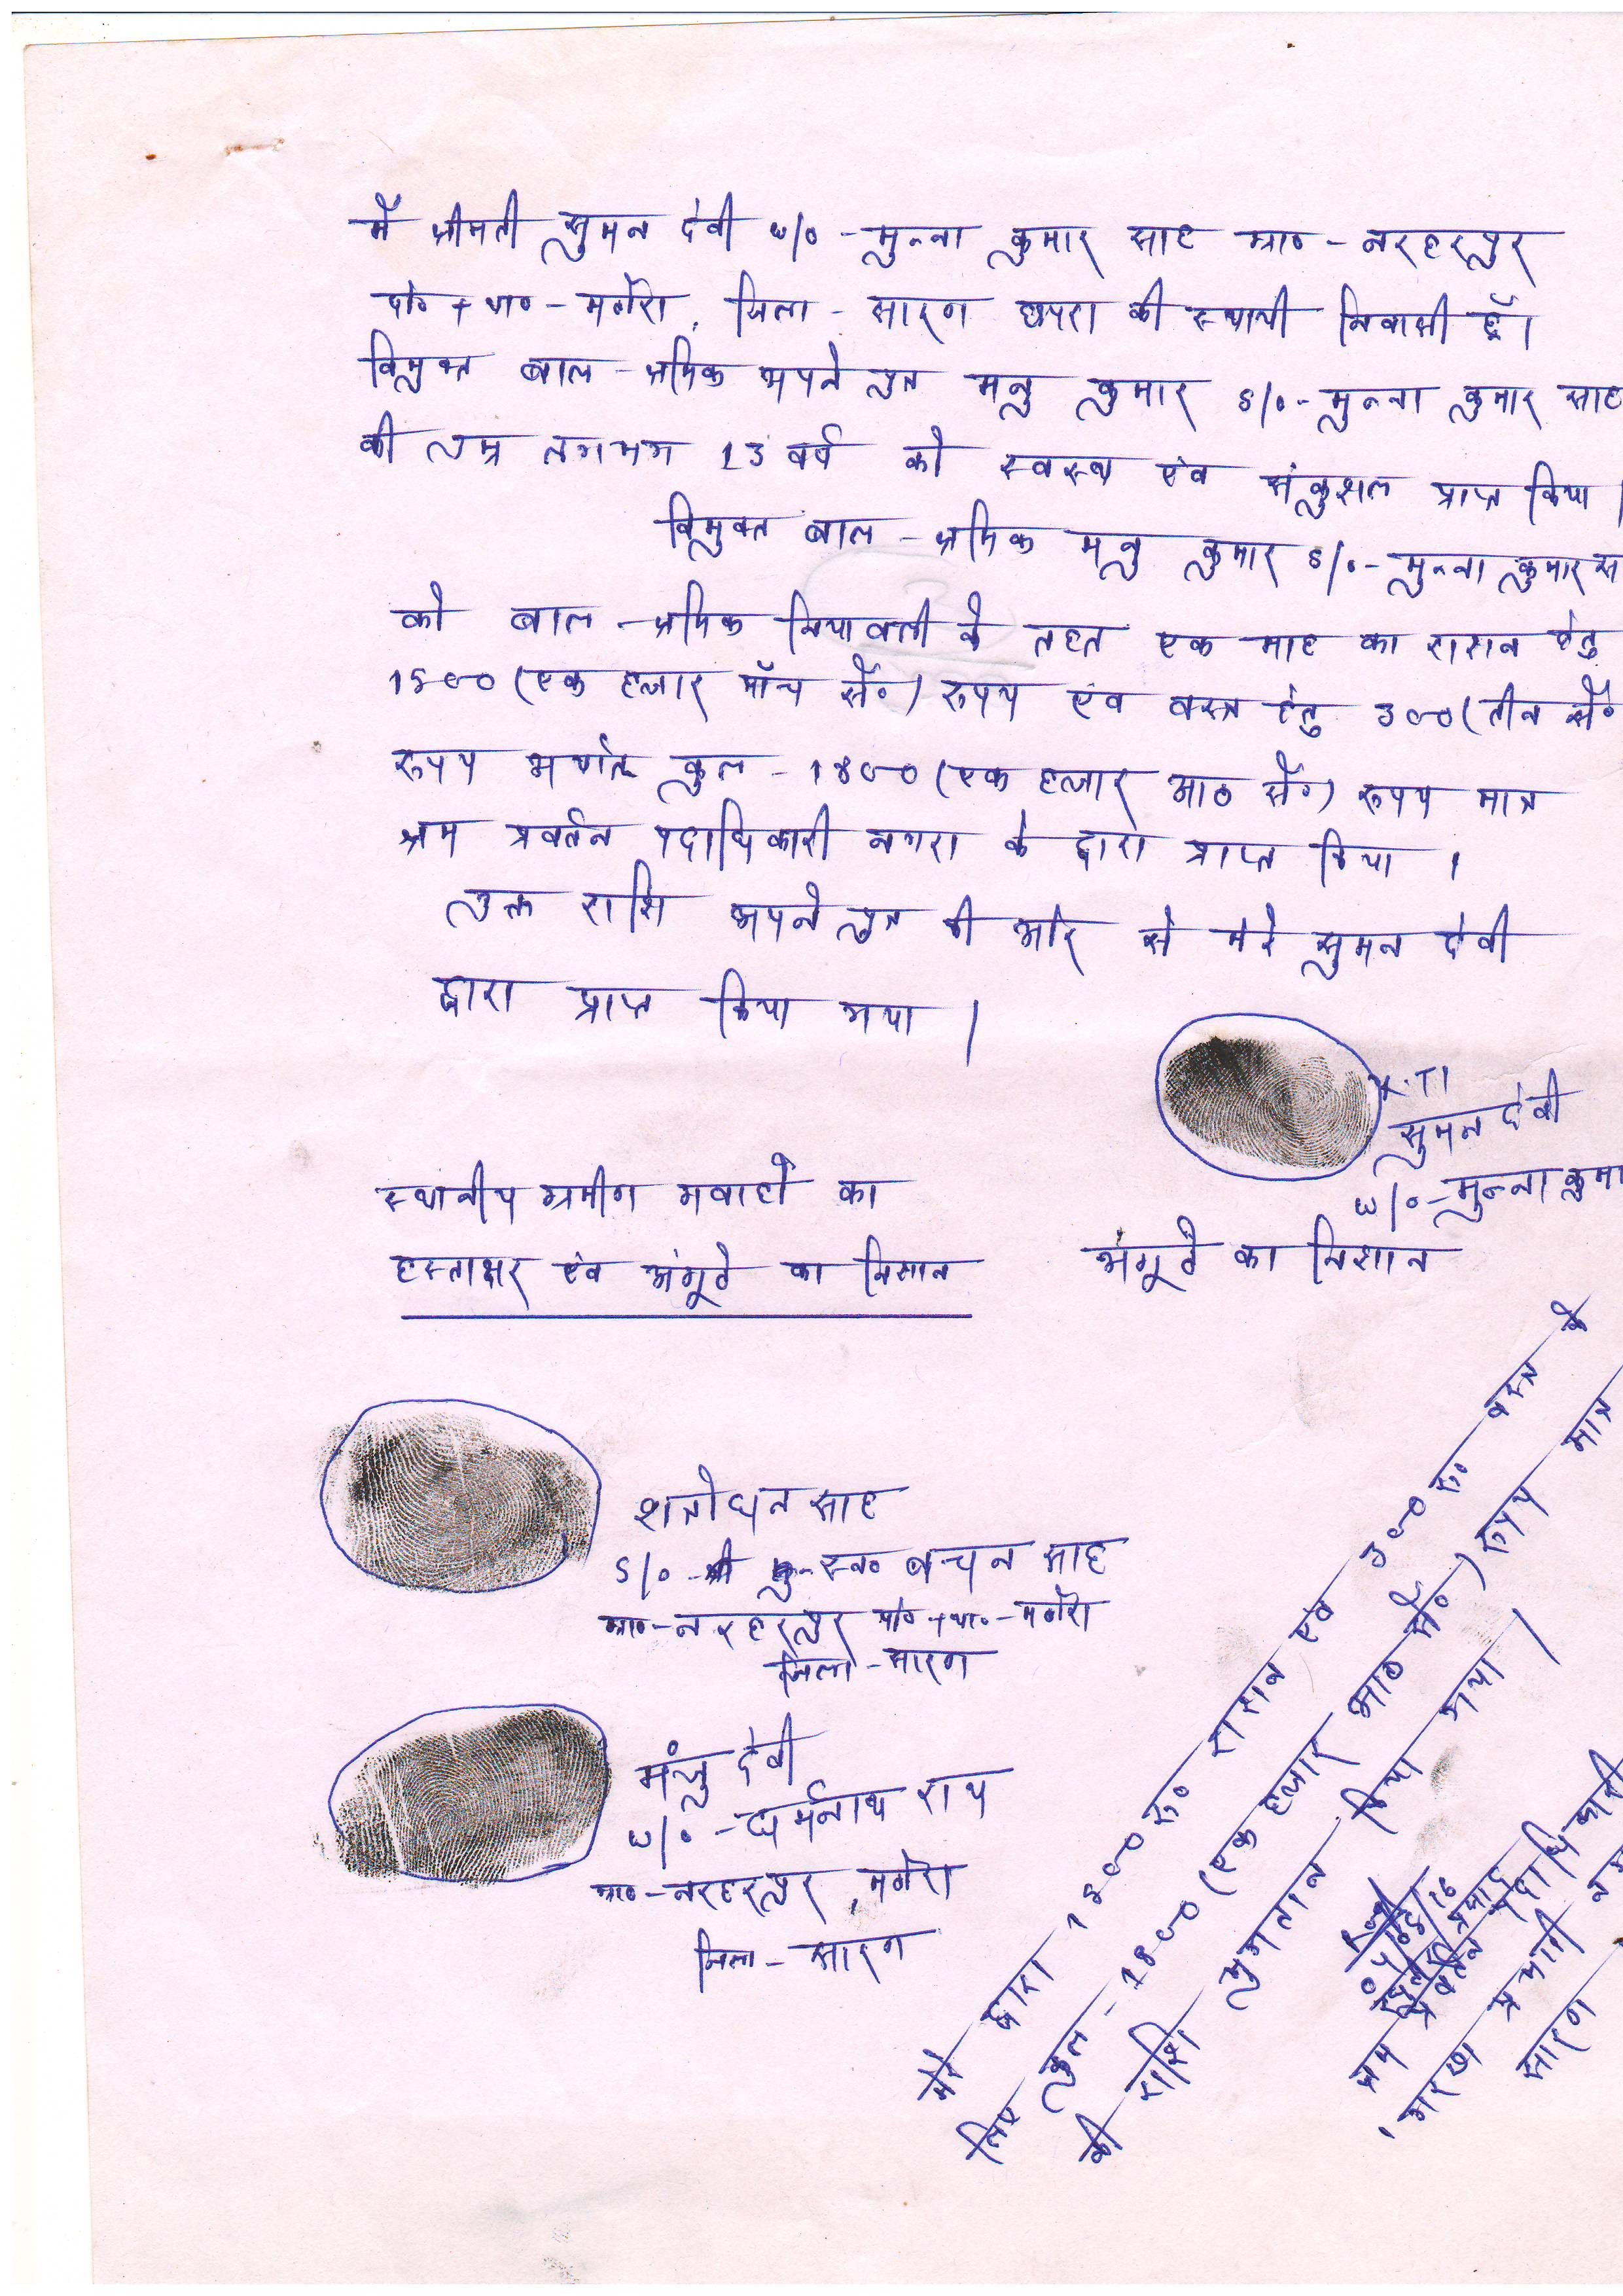 मैं श्रीमती सुमन देवी w/o - मुन्ना कुमार साह ग्रा० - नरहरपुर
पो० + था० - मढ़ौरा, जिला - सारण छपरा की स्थायी निवासी हूँ।
विमुक्त बाल - श्रमिक अपने पुत्र मन्नु कुमार s/o - मुन्ना कुमार साह
की उम्र लगभग 13 वर्ष को स्वस्थ एंव संकुशल प्राप्त किया।
विमुक्त बाल - श्रमिक मन्नु कुमार s/o - मुन्ना कुमार सा
को बाल - श्रमिक नियावली के तहत एक माह का राशन हेतु
1500 (एक हजार पाँच सौ०) रुपय एंव वस्त्र हेतु 300 (तीन सौ०
रुपय अर्थात कुल - 1800 (एक हजार आठ सौ०) रुपय मात्र
श्रम प्रवर्तन पदाधिकारी नगरा के द्वारा प्राप्त किया ।
उक्त राशि अपने पुत्र की ओर से मेरे सुमन देवी
द्वारा प्राप्त किया गया ।
R.T.I
सुमन देवी
w/o - मुन्ना कुमा
अंगूठे का निशान
स्थानीय ग्रमीण गवाहों का
हस्ताक्षर एंव अंगूठे का निसान
शत्रोधन साह
s/o - स्व० बचन साह
ग्रा० - नरहरपुर पो० + था० - मढ़ौरा
जिला - सारण
मंजु देवी
w/o - धर्मनाथ राय
ग्रा० - नरहरपुर, मढ़ौरा
जिला - सारण
मेरे द्वारा 1500 रु० राशन एंव 300 रु० वस्त्र के
लिए कुल - 1800 (एक हजार आठ सौ०) रुपय मात्र
की राशि भुगतान किया गया ।
04/06/16
श्रम प्रवर्तन पदाधिकारी
प्रभारी
सारण